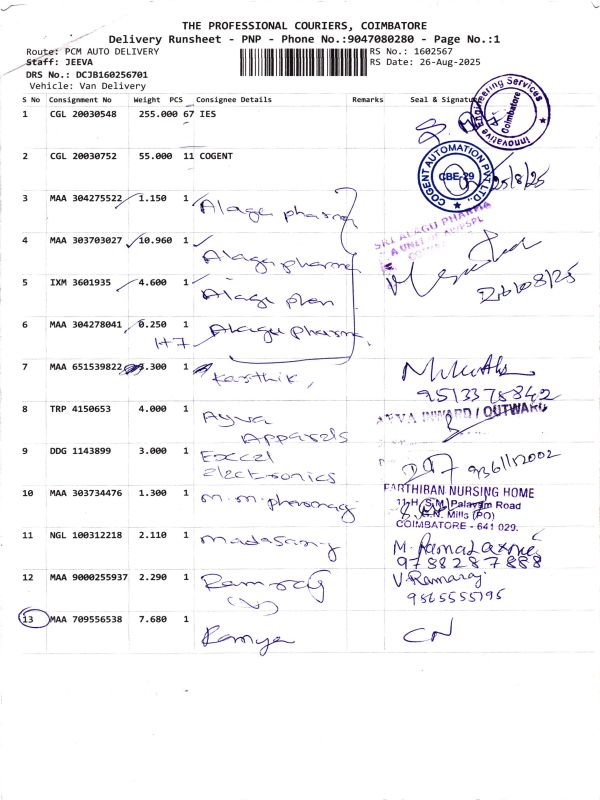 THE PROFESSIONAL COURIERS, COIMBATORE
Delivery Runsheet - PNP - Phone No.:9047080280 - Page No.:1
Route: PCM AUTO DELIVERY RS No.: 1602567
Staff: JEEVA RS Date: 26-Aug-2025
DRS No.: DCJB160256701
Vehicle: Van Delivery
S No Consignment No Weight PCS Consignee Details Remarks Seal & Signature
Innovative Engineering Services
Coimbatore
1 CGL 20030548 255.000 67 IES
2 CGL 20030752 55.000 11 COGENT
COGENT AUTOMATION PVT LTD.,
CBE-29
25/8/25
3 MAA 304275522 1.150 1 Alagu pharma
4 MAA 303703027 10.960 1 Alagu pharma
SRI ALAGU PHARMA
A UNIT OF
5 IXM 3601935 4.600 1 Alagu
26/08/25
6 MAA 304278041 0.250 1 Alagu pharma
H7
7 MAA 651539822 3.300 1 Karthik,
9513375842
8 TRP 4150653 4.000 1 Ayva
Apparels
AYVA INWARD / OUTWARD
9 DDG 1143899 3.000 1 Excel
Electronics
10 MAA 303734476 1.300 1 M.M.
PARTHIBAN NURSING HOME
11-H, S.M. Palayam Road
G.N. Mills (PO)
COIMBATORE - 641 029.
11 NGL 100312218 2.110 1
9788287888
12 MAA 9000255937 2.290 1 Ramraj
(V)
V. Ramaraj
9865555195
13 MAA 709556538 7.680 1 Ramya
CN